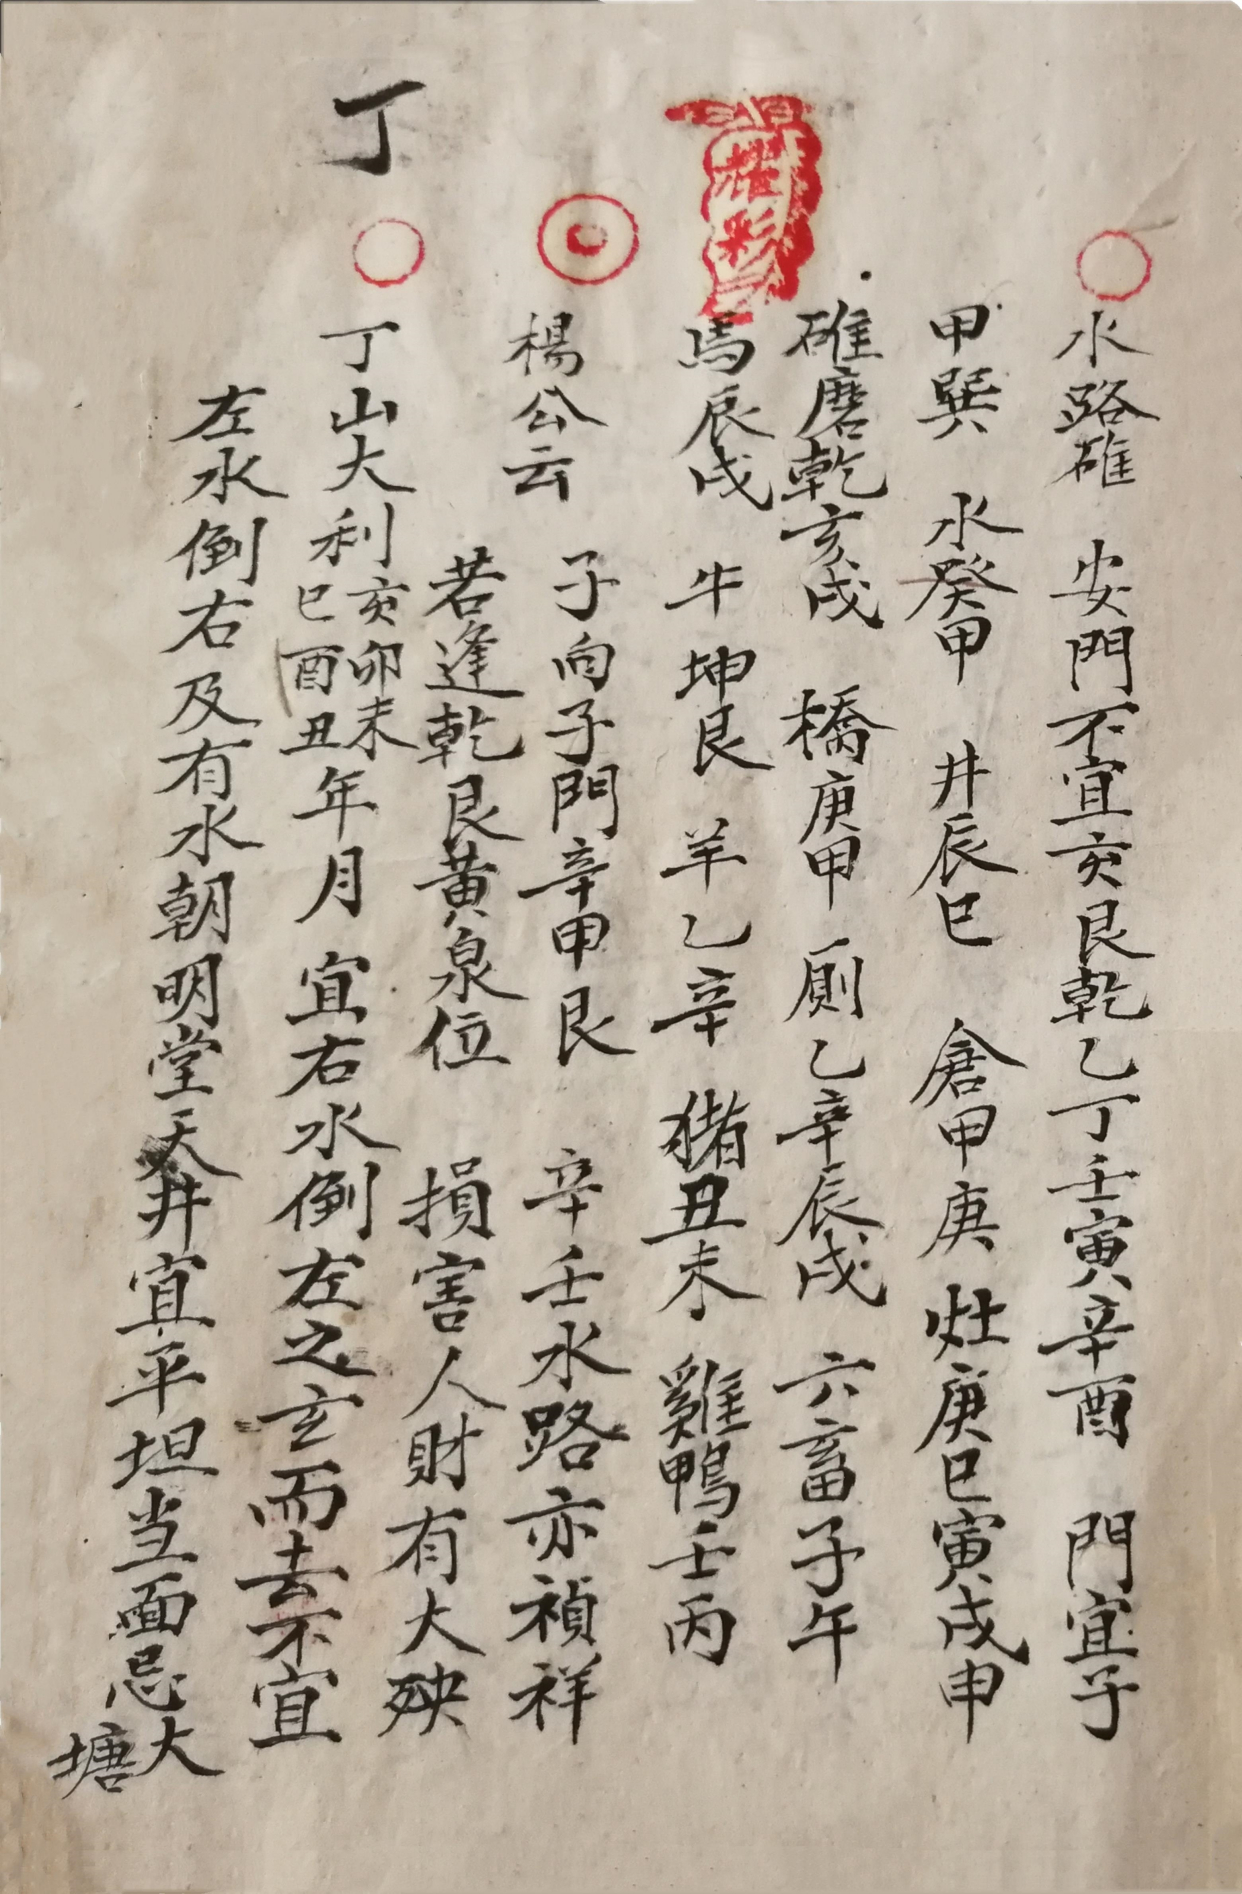 水路碓 安門不宜亥艮乾乙丁壬寅辛酉 門宜子
甲巽 水癸甲 井辰巳 倉甲庚 灶庚巳寅戌申
碓磨乾亥戌 橋庚甲 厠乙辛辰戌 六畜子午
馬辰戌 牛坤艮 羊乙辛 猪丑未 雞鴨壬丙
楊公云 子向子門辛甲艮 辛壬水路亦禎祥
若逢乾艮黃泉位 損害人財有大殃
丁
丁山大利亥卯未巳酉丑年月 宜右水倒左之玄而去不宜
左水倒右及有水朝明堂天井宜平坦当面忌大塘